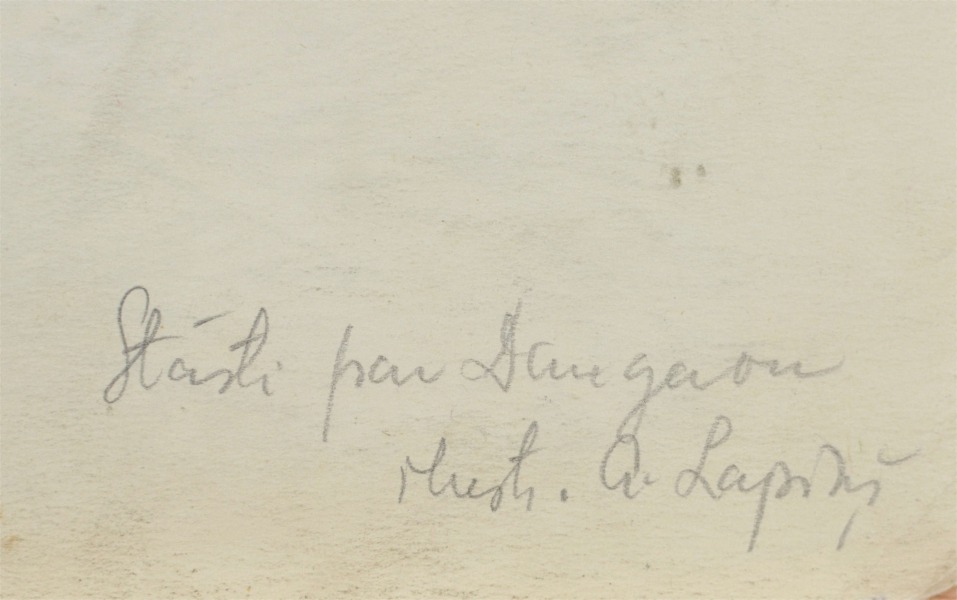 Stāsti par Daugavu
ilustr. A. Lapiņš